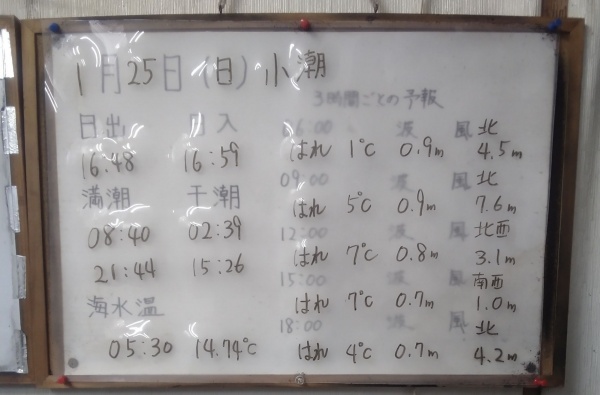 1月25日(日)小潮
3時間ごとの予報
日出 日入
16:48 16:59
満潮 干潮
08:40 02:39
21:44 15:26
海水温
05:30 14.74℃
06:00 波 風 北
はれ 1℃ 0.9m 4.5m
09:00 波 風 北
はれ 5℃ 0.9m 7.6m
12:00 波 風 北西
はれ 7℃ 0.8m 3.1m
15:00 波 風 南西
はれ 7℃ 0.7m 1.0m
18:00 波 風 北
はれ 4℃ 0.7m 4.2m